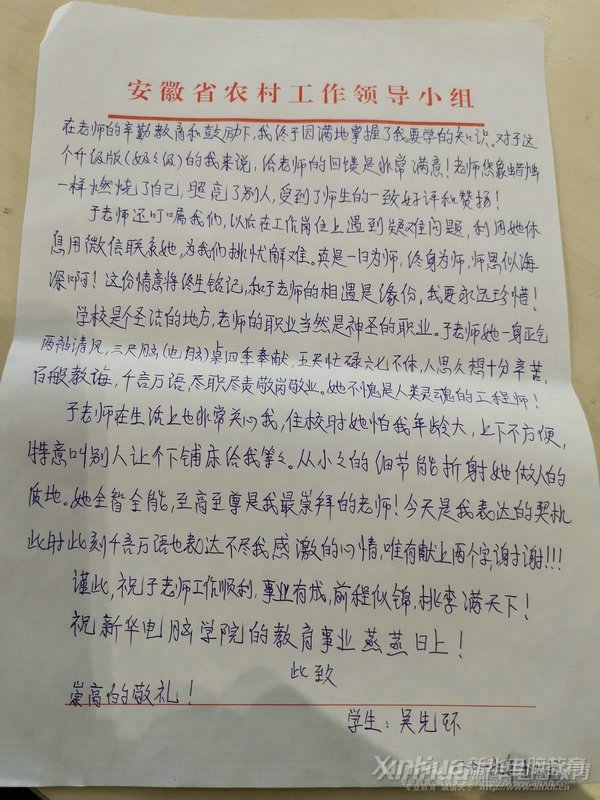 安徽省农村工作领导小组
在老师的辛勤教育和鼓励下，我终于圆满地掌握了我要学的知识。对于这
个升级版（奶奶级）的我来说，给老师的回馈是非常满意！老师您象蜡烛
一样燃烧了自己，照亮了别人，受到了师生的一致好评和赞扬！
于老师还叮嘱我们，以后在工作岗位上遇到疑难问题，利用她休
息用微信联系她，为我们排忧解难。真是一日为师，终身为师，师恩似海
深啊！这份情意将终生铭记，和于老师的相遇是缘份，我要永远珍惜！
学校是个圣洁的地方，老师的职业当然是神圣的职业。于老师她一身正气
两袖清风，三尺（电脑）桌四季奉献，五天忙碌六七不休，八思九想十分辛苦，
百般教诲，千言万语，尽职尽责敬岗敬业。她不愧是人类灵魂的工程师！
于老师在生活上也非常关心我，住校时她怕我年龄大，上下不方便，
特意叫别人让个下铺床给我等等。从小小的细节能折射她做人的
质地。她全智全能，至高至尊是我最崇拜的老师！今天是我表达的契机
此时此刻千言万语也表达不尽我感激的心情，唯有献上两个字，谢谢！！！
谨此，祝于老师工作顺利，事业有成，前程似锦，桃李满天下！
祝新华电脑学院的教育事业蒸蒸日上！
此致
崇高的敬礼！
学生：吴先环
Xinhua新华电脑教育
专业教育 诚信天下 http://www.ahxh.cn